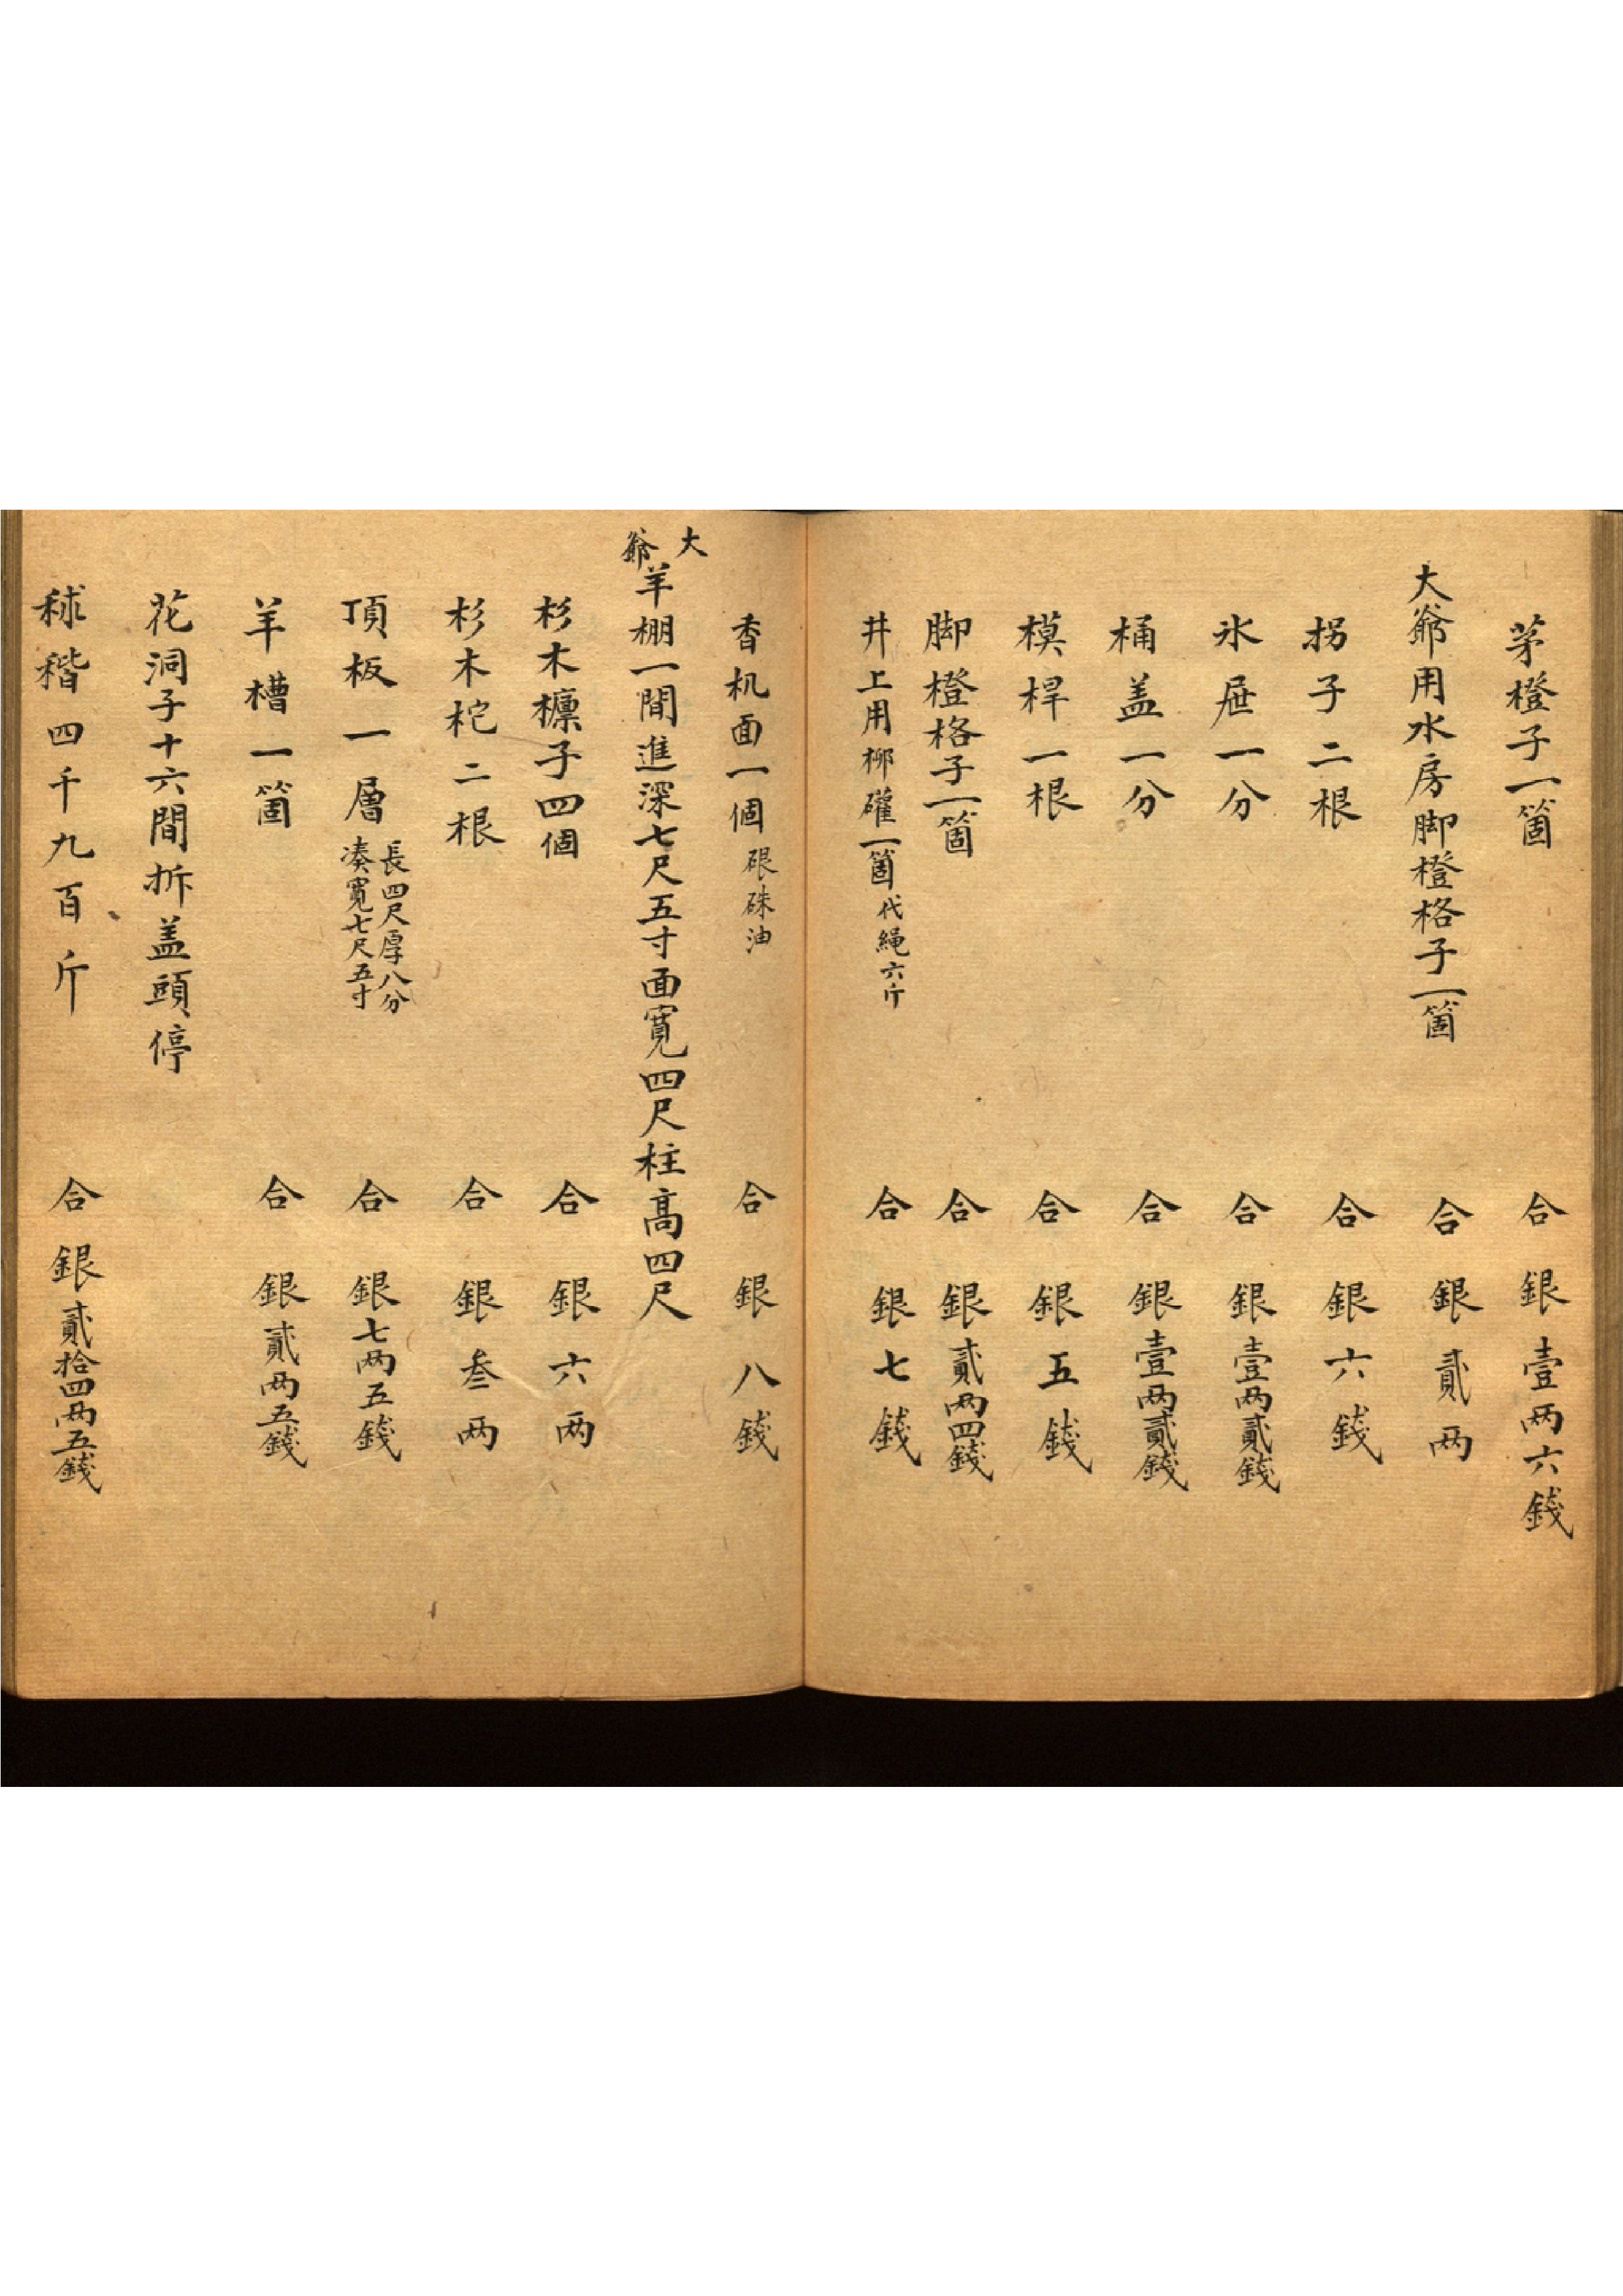 茅橙子一箇　合銀壹两六錢
大爺用水房脚橙格子一箇　合銀貳两
拐子二根　合銀六錢
氷屉一分　合銀壹两貳錢
桶盖一分　合銀壹两貳錢
模桿一根　合銀五錢
脚橙格子一箇　合銀貳两四錢
井上用柳礶一箇代繩六斤　合銀七錢
香机面一個硍硃油　合銀八錢
大爺羊棚一間進深七尺五寸面寛四尺柱髙四尺
杉木檩子四個　合銀六两
杉木柁二根　合銀叁两
頂板一層長四尺厚八分湊寛七尺五寸　合銀七两五錢
羊槽一箇　合銀貳两五錢
花洞子十六間拆盖頭停
秫稭四千九百斤　合銀貳拾四两五錢